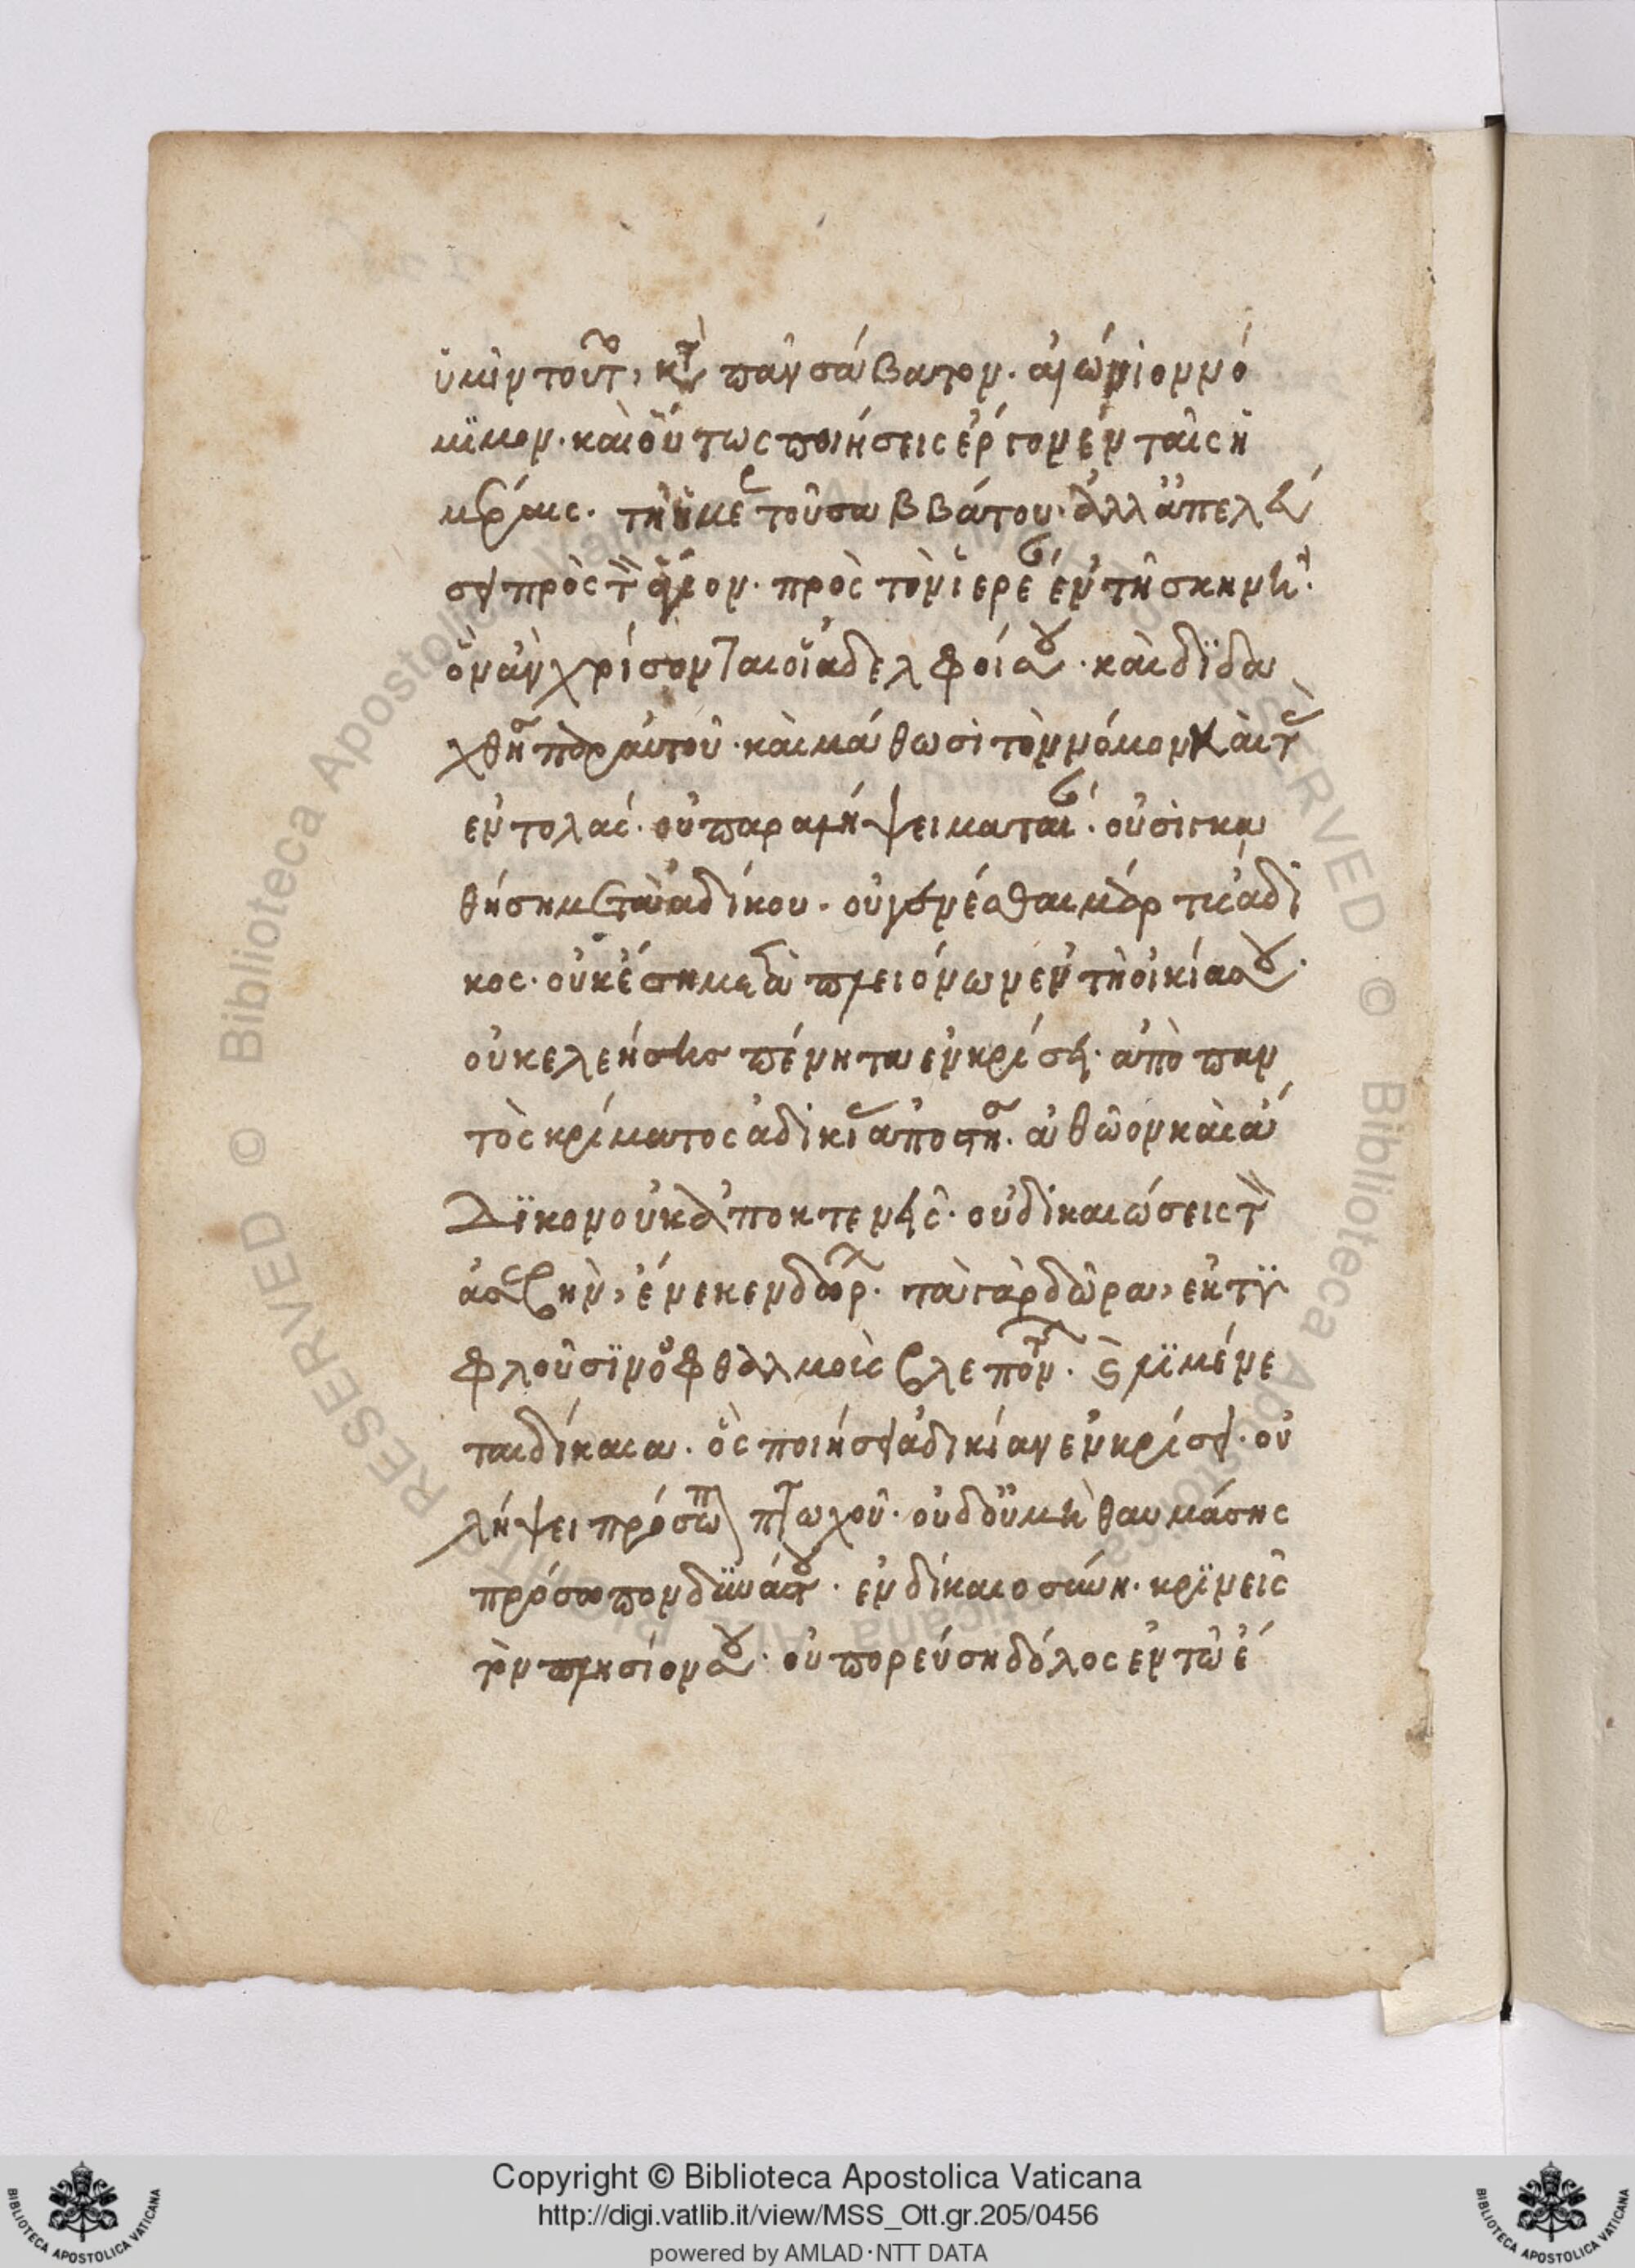 ὑμῖν τοῦτ, κατ πᾶν σάβατον. αἰώνιον νό
μϊμον. καὶ οὕτως ποιήσεις ἔργον ἐν ταῖς ἡ
μέραις. τῆ ἡμέρ τοῦ σαββάτου. ἀλλ ἀπελεύ
ση πρὸς τὸν ναόν. πρὸς τὸν ἱερέα ἐν τῆ σκηνῆ.
ὃν ἂν χρίσονται οἱ ἀδελφοί σου. καὶ δϊδα
χθῆς παρ αὐτοῦ. καὶ μάθωσι τὸν νόμον καὶ τὰς
ἐντολάς. οὐ παραλήψει ματαί. οὐ συγκα
θήση μετὰ ἀδίκου. οὐ γενέσθαι μάρτυς ἄδι
κος. οὐκ ἔση μετὰ πλειόνων ἐν τῆ οἰκία σου.
οὐκ ελεήσεις πένητα ἐν κρίσει. ἀπὸ παν
τὸς κρίματος ἀδικίας ἀποστῆς. ἀθῶον καὶ ἀ
δϊκον οὐκ ἀποκτενεῖς. οὐ δικαιώσεις τὸν
ἀσεβὴν, ἕνεκεν δώρων. τὰ γὰρ δῶρα, ἐκτϋ
φλοῦσϊν ὀφθαλμοὺς βλεπόντων. καὶ λϋμένε
ται δίκαια. ὃς ποιήση ἀδικίαν ἐν κρίση. οὐ
λήψει πρόσωπ πτωχοῦ. οὐδ οὐ μὴ θαυμάσης
πρόσωπον δϋνάστου. ἐν δικαιοσύνη. κρϊνεῖς
τὸν πλησίον σου. οὐ πορεύση δόλος ἐν τῷ ἔ
Copyright © Biblioteca Apostolica Vaticana
http://digi.vatlib.it/view/MSS_Ott.gr.205/0456
powered by AMLAD·NTT DATA
BIBLIOTECA APOSTOLICA VATICANA
BIBLIOTECA APOSTOLICA VATICANA